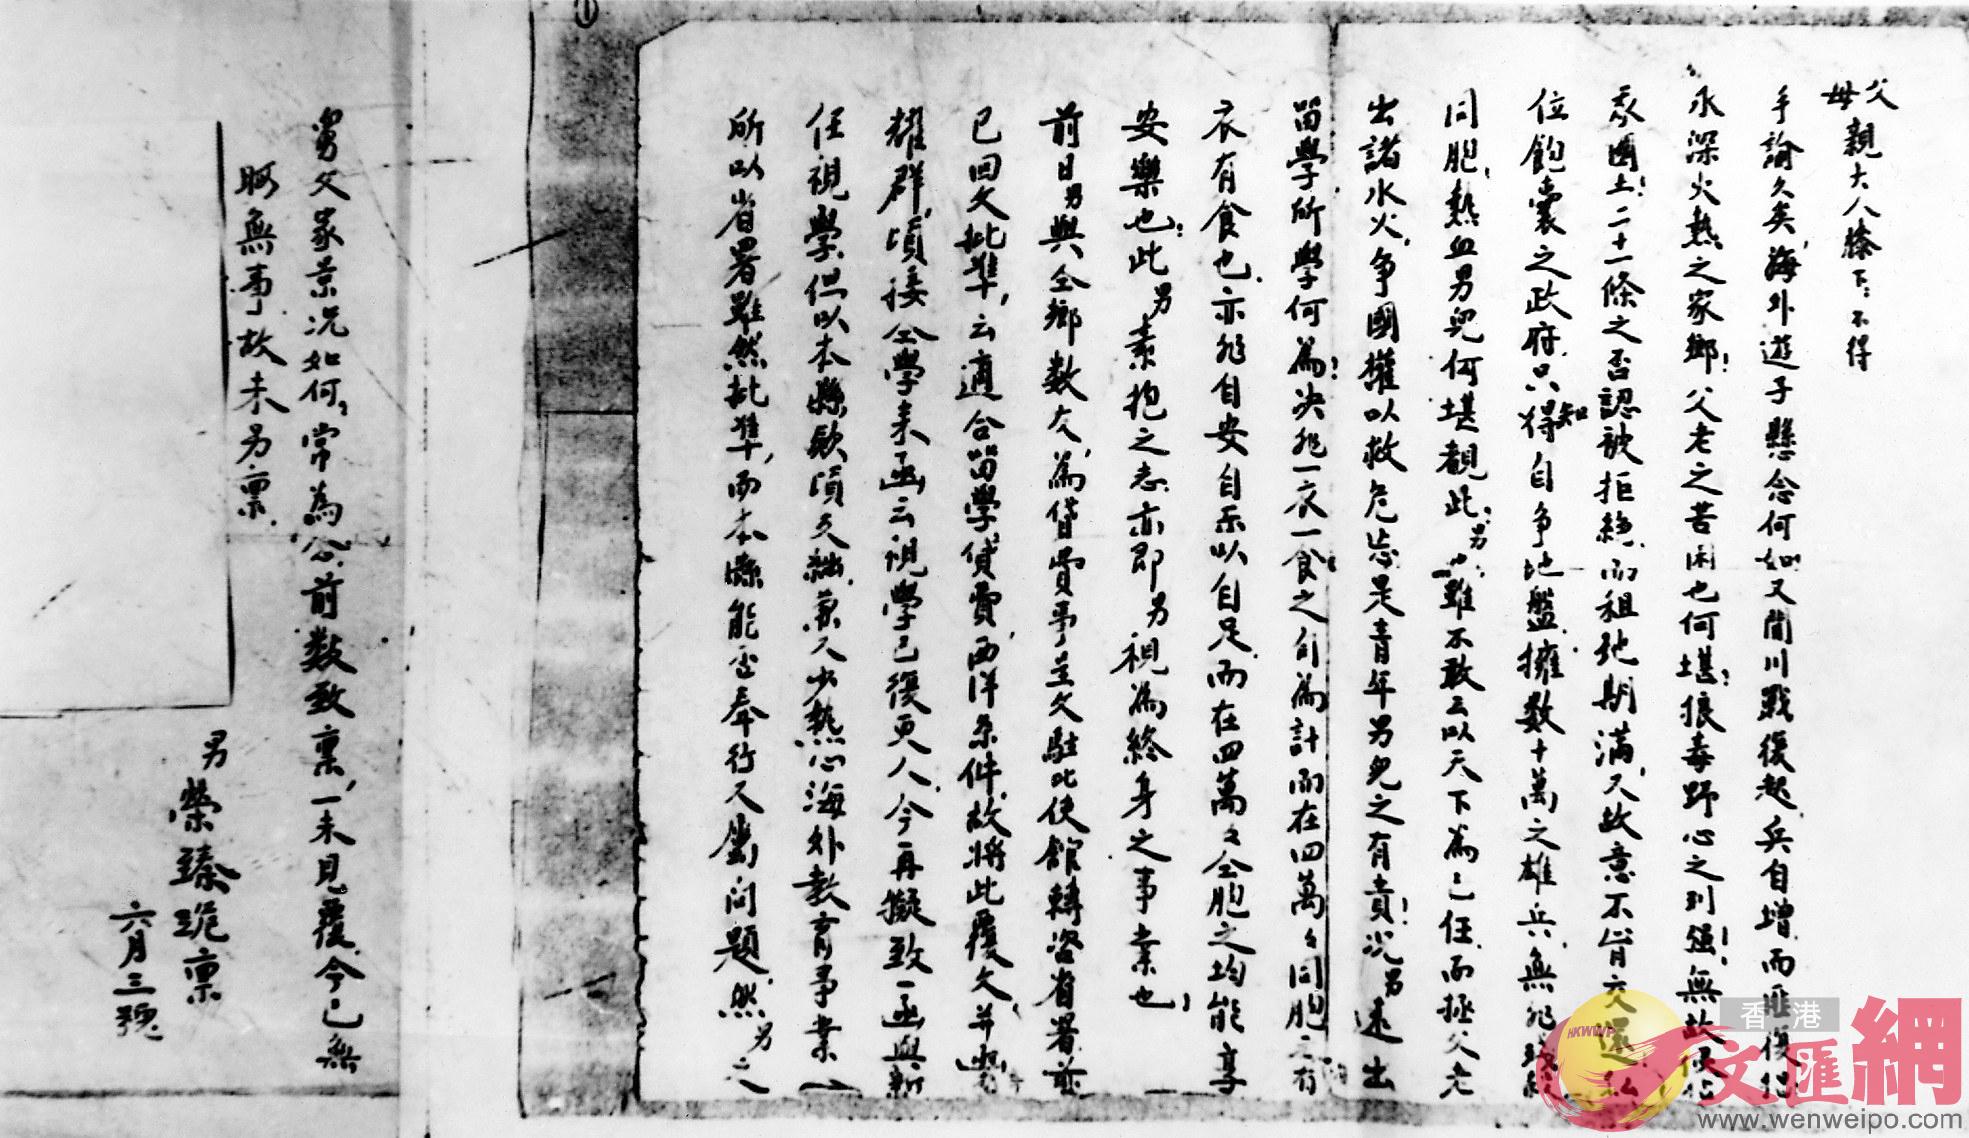 父母親大人膝下：不得
手諭久矣，海外遊子懸念何如，又聞川戰復起，兵自增而匪復
水深火熱之家鄉！父老之苦困也何堪！狼毒野心之列强！無故
我國土！二十一條之否認被拒絕，而租地期滿，又故意不肯交還
位飽囊之政府，只知得自争地盤，擁數十萬之雄兵，無非
同胞，熱血男兒何堪覩此，男雖不敢云以天下為己任，而拯父老
出諸水火，争國權以救危亡，是青年男兒之有責！況男遠出
留學，所學何為！決非一衣一食之自為計，而在四萬々同胞之有
衣有食也，亦非自安自示以自足，而在四萬々仝胞之均能享
安樂也：此男素抱之志，亦即男視為終身之事業也，
前日男與仝鄉数友，為貸費事呈文駐比使館轉咨省署，並
已回文批準，云適合留學貸費，西洋条件，故將此覆文并
耀群，頃接仝學來函云，視學已復更人，今再擬致一函與新
任視學，但以本縣欵項支絀，兼又少熱心海外教育事業（
所以省署雖然批準，而本縣能否奉行又屬問題，然男之
舅父家景况如何，常為念，前数致稟，一未見覆，今已無
暇無事故未另稟
男
榮臻跪稟
六月三號
①
香港
文匯網
HKWWP
www.wenweipo.com